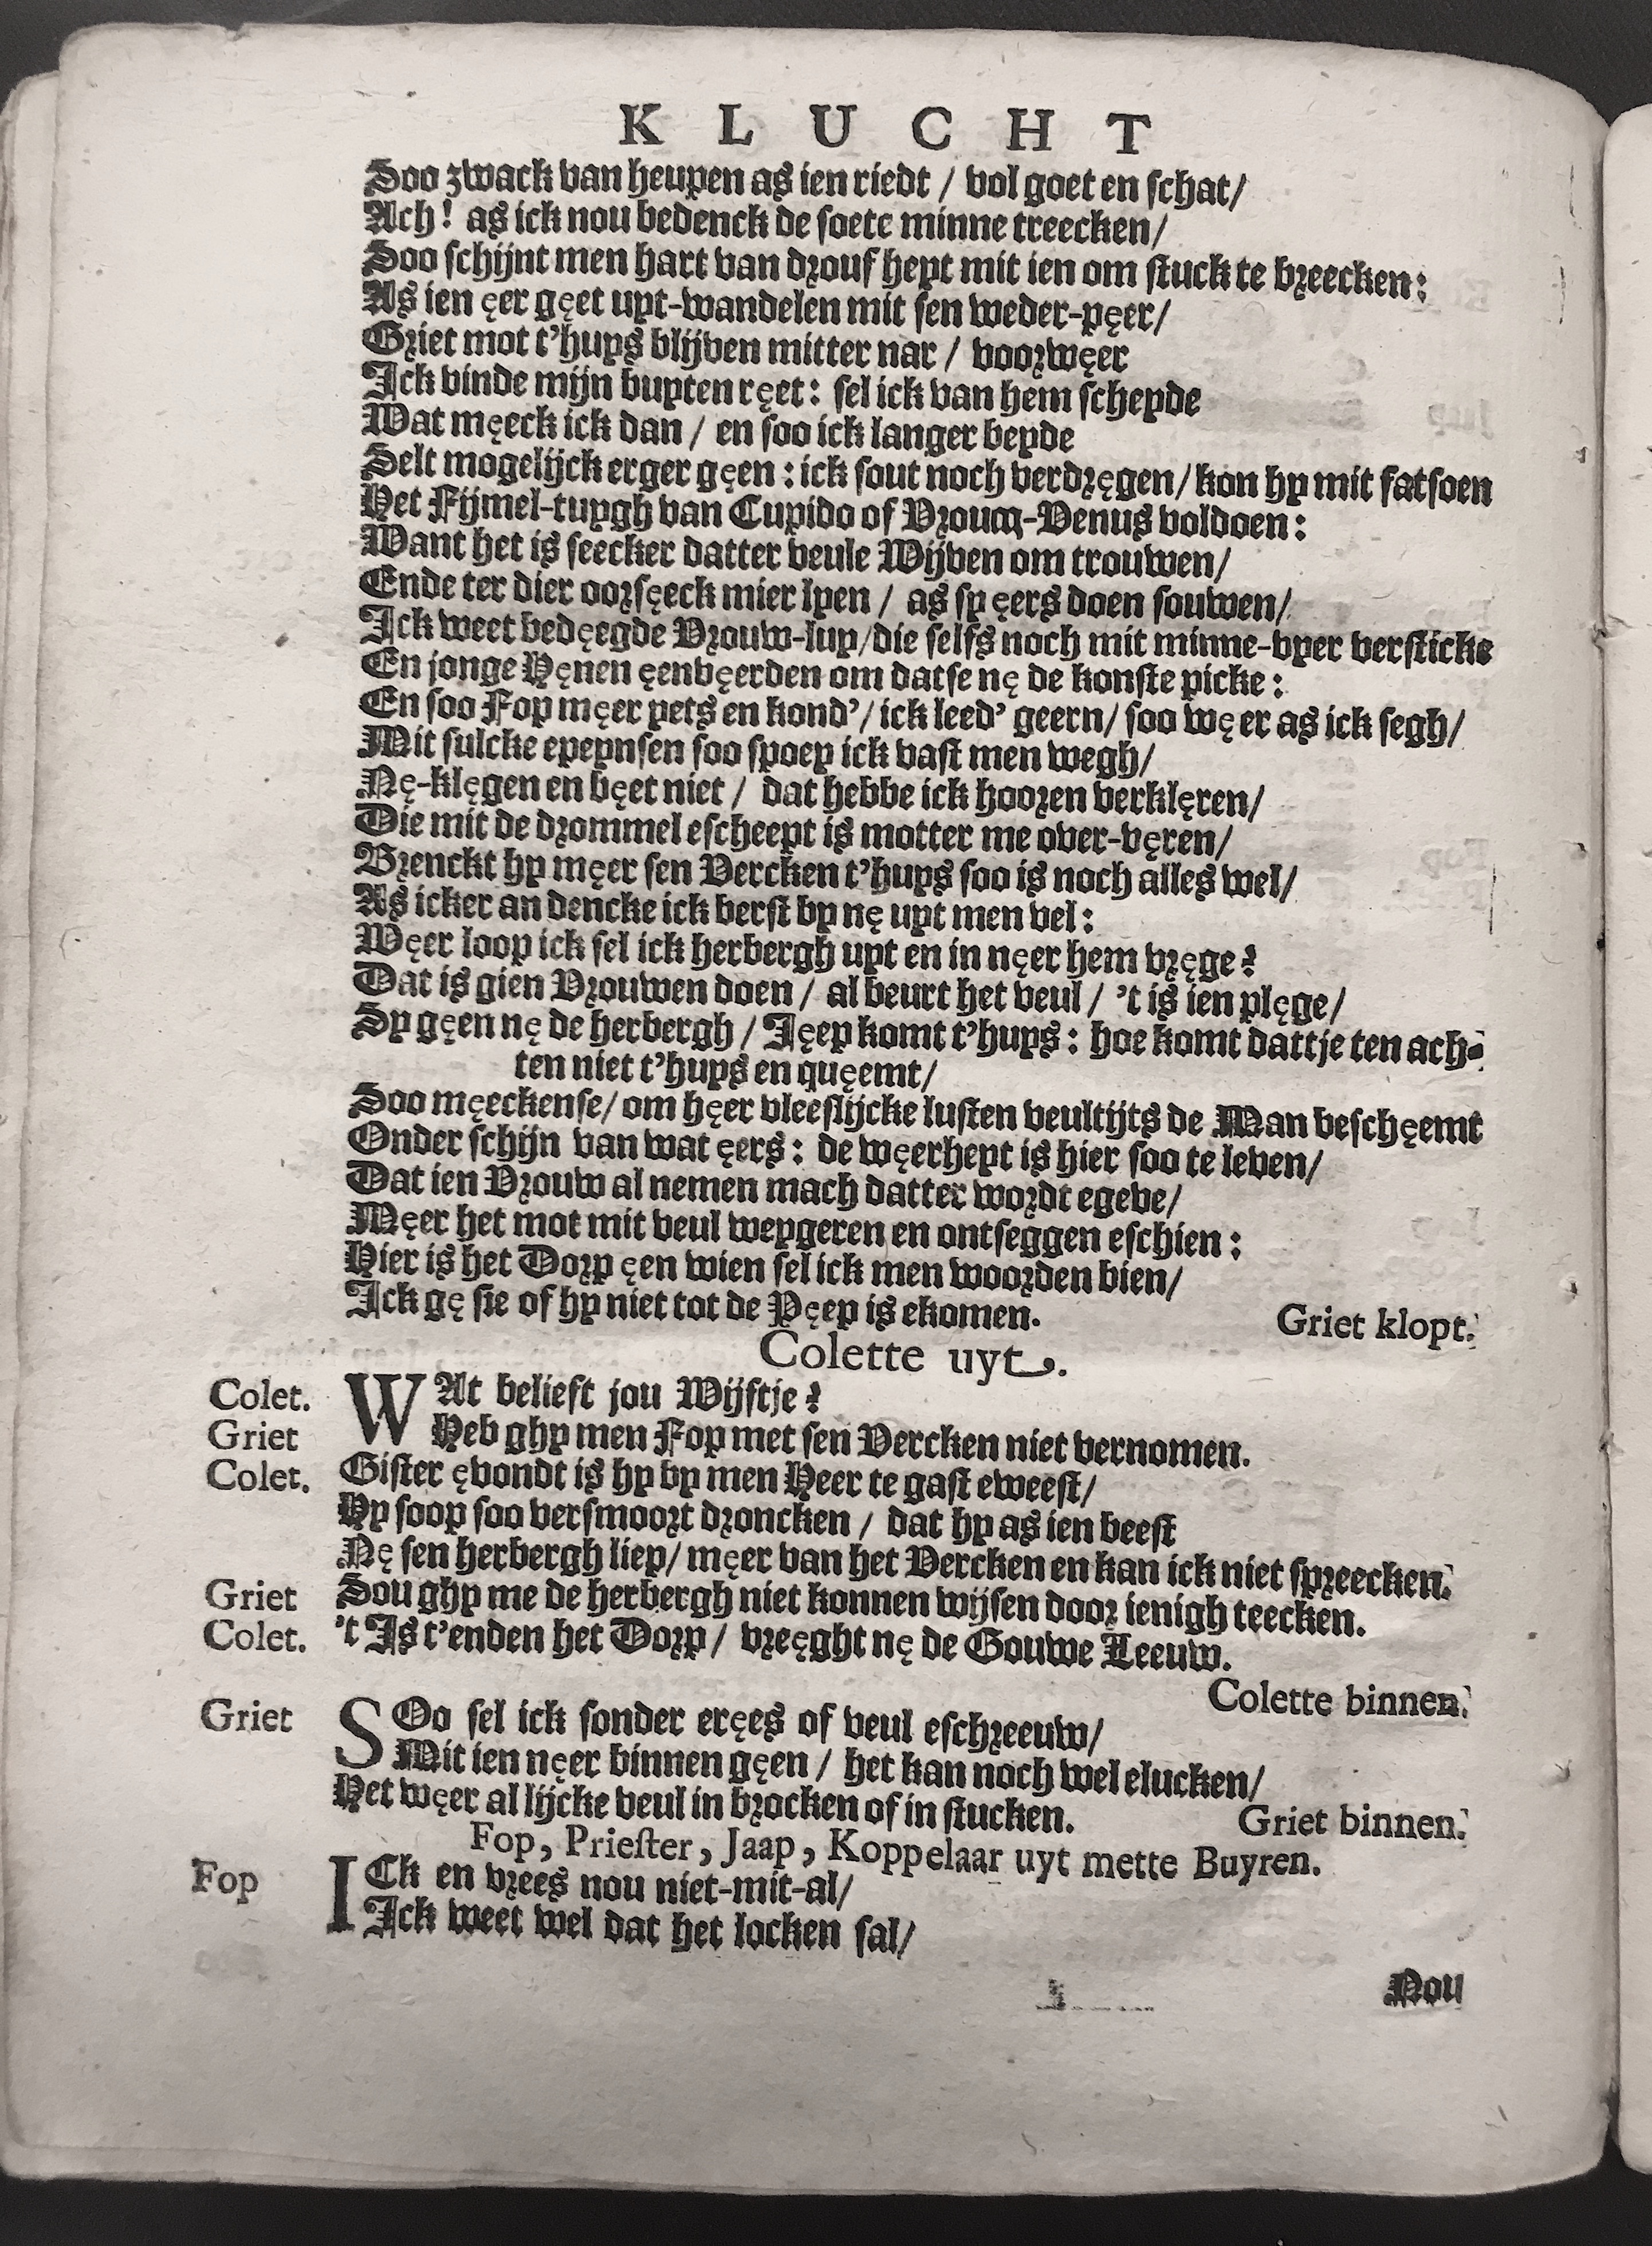 KLUCHT
Soo zwack van heupen as ien riedt / vol goet en schat/
Ach! as ick nou bedenck de soete minne treecken/
Soo schijnt men hart van drouf heyt mit ien om stuck te breecken:
As ien ęer gęet uyt-wandelen mit sen weder-pęer/
Griet mot t'huys blijven mitter nar / voorwęer
Ick vinde mijn buyten ręet: sel ick van hem scheyde
Wat męeck ick dan / en soo ick langer beyde
Selt mogelijck erger gęen: ick sout noch verdręgen/ kon hy mit fatsoen
Het Fijmel-tuygh van Cupido of Vrouw-Venus voldoen:
Want het is seecker datter veule Wijven om trouwen/
Ende ter dier oorsęeck mier lyen / as sy ęers doen souwen/
Ick weet bedęegde Vrouw-luy/die selfs noch mit minne-vyer versticke
En jonge Hęnen ęenvęerden om datse nę de konste picke:
En soo Fop męer yets en kond'/ ick leed' geern/ soo węer as ick segh/
Mit sulcke epeynsen soo spoey ick vast men wegh/
Nę-klęgen en bęet niet / dat hebbe ick hooren verklęren/
Die mit de drommel escheept is motter me over-vęren/
Brenckt hy męer sen Vercken t'huys soo is noch alles wel/
As icker an dencke ick berst by nę uyt men vel:
Węer loop ick sel ick herbergh uyt en in nęer hem vręge?
Dat is gien Vrouwen doen / al beurt het veul / 't is ien plęge/
Sy gęen nę de herbergh / Jęep komt t'huys: hoe komt dattje ten ach-
ten niet t'huys en quęemt/
Soo męeckense/ om hęer vleeslijcke lusten veultijts de Man beschęemt
Onder schijn van wat ęers: de węerheyt is hier soo te leven/
Dat ien Vrouw al nemen mach datter wordt egeve/
Męer het mot mit veul weygeren en ontseggen eschien:
Hier is het Dorp ęen wien sel ick men woorden bien/
Ick gę sie of hy niet tot de Pęep is ekomen.
Griet klopt.
Colette uyt.
Colet. WAt belieft jou Wijftje?
Griet Heb ghy men Fop met sen Vercken niet vernomen.
Colet. Gister ęvondt is hy by men Heer te gast eweest/
Hy soop soo versmoort droncken / dat hy as ien beest
Nę sen herbergh liep/ męer van het Vercken en kan ick niet spreecken.
Griet Sou ghy me de herbergh niet konnen wijsen door ienigh teecken.
Colet. 't Is t'enden het Dorp / vręeght nę de Gouwe Leeuw.
Colette binnen.
Griet SOo sel ick sonder eręes of veul eschreeuw/
Mit ien nęer binnen gęen / het kan noch wel elucken/
Het węer al lijcke veul in brocken of in stucken.
Griet binnen.
Fop, Priester, Jaap, Koppelaar uyt mette Buyren.
Fop ICk en vrees nou niet-mit-al/
Ick weet wel dat het locken sal/
Nou